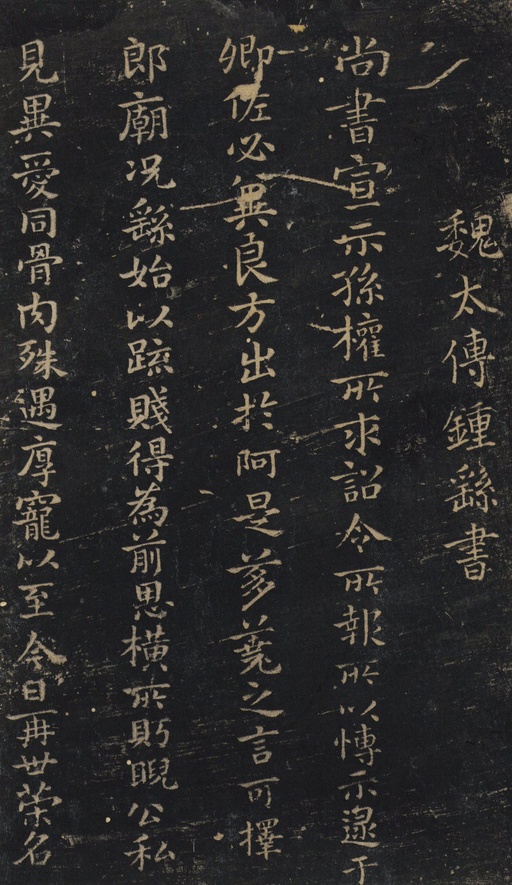 魏太傅鍾繇書
尚書宣示孫權所求詔令所報所以博示逮于
卿佐必冀良方出於阿是芻蕘之言可擇
郎廟况繇始以疏賤得為前恩橫所眄睨公私
見異愛同骨肉殊遇厚寵以至今日再世榮名